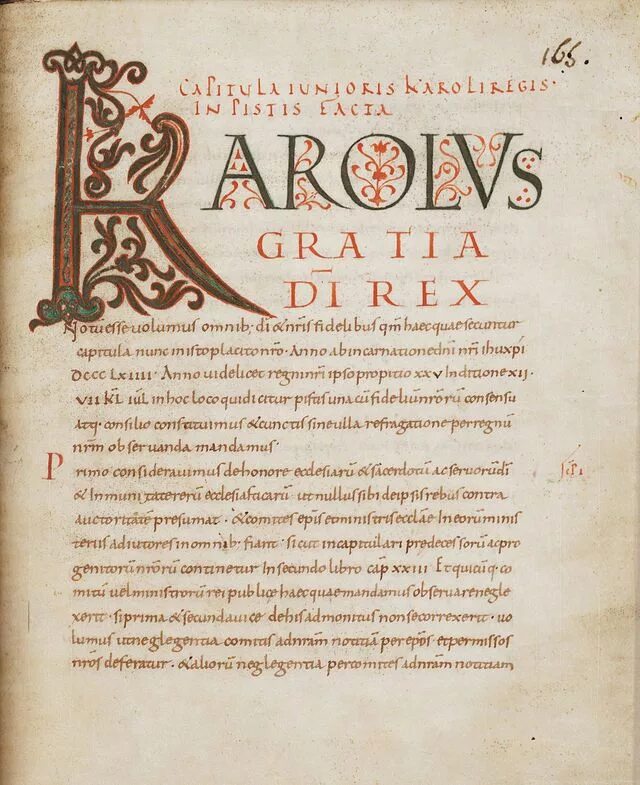 165.
CAPITULA IUNIORIS KAROLI REGIS·
IN PISTIS FACTA
KAROLVS
GRATIA
DĪ REX
Notū esse uolumus omnib; dī & nr̄is fidelibus qm̄ haec quae secuntur
capitula nunc in isto placito nr̄o· Anno ab incarnatione dn̄i nr̄i ihu xp̄i
DCCC LXIIII· Anno uidelicet regni nr̄i ipso propitio xxv Indictione XII·
VII KL̄ IUL̄ in hoc loco qui dicitur pistis una cū fideliū nr̄orū consensu
atq· consilio constituimus & cunctis sine ulla refragatione per regnum
nr̄m obseruanda mandamus·
Primo consideravimus de honore ecclesiarū & sacerdotū ac seruorū dī
& Inmunitate rerū ecclesiasticarū· ut nullus sibi de ipsis rebus contra
auctoritatē presumat· & comites ep̄is et ministris ecclāe In eorū minis
teriis adiutores in omnib; fiant· sicut in capitulari predecessorū ac pro
genitorū nr̄orū continetur In secundo libro cap̄ xxiii Et quicūq· co
mitū uel ministrorū rei publicę haec quae mandamus obseruare negle
xerit· si prima & secunda uice de his admonitus non se correxerit· uo
lumus ut neglegentia comitis ad nr̄am notitiā per ep̄os et per missos
nr̄os deferatur· & aliorū neglegentia per comites ad nr̄am notitiam